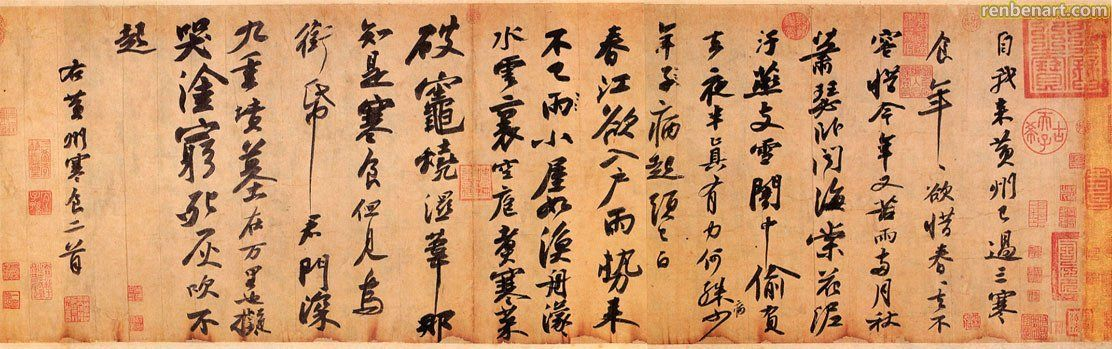 renbenart.com
自我来黄州已過三寒
食年〻欲惜春〻去不
容惜今年又苦雨兩月秋
蕭瑟卧聞海棠花泥
汙燕支雪闇中偷負
去夜半真有力何殊少
病
年子病起頭已白
春江欲入户雨勢来
不已雨小屋如漁舟濛〻
水雲裏空庖煑寒菜
破竈燒濕葦那
知是寒食但見烏
銜帋君門深
九重墳墓在万里也擬
哭塗窮死灰吹不
起
右黄州寒食二首